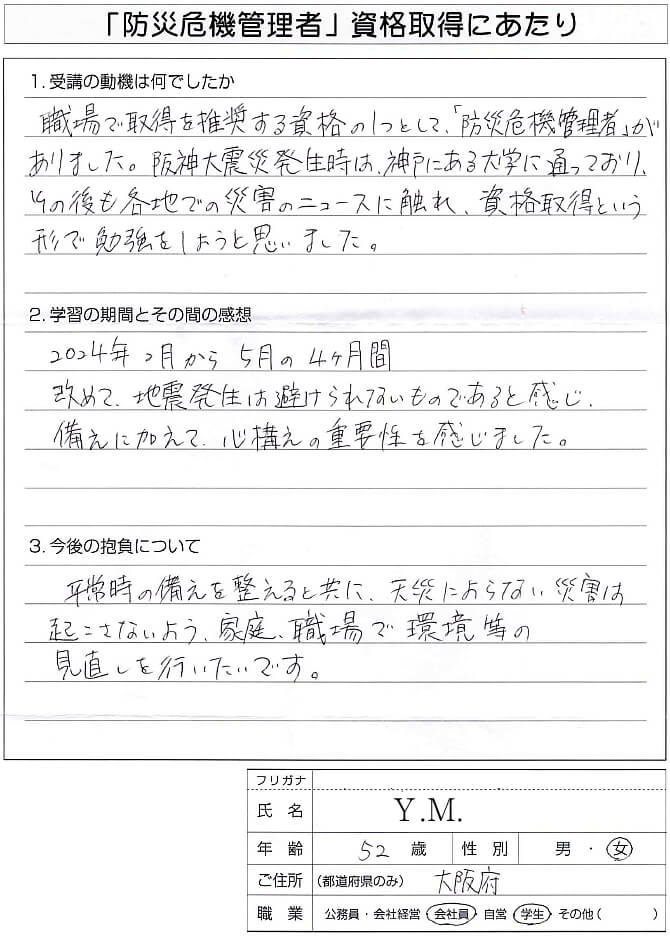 「防災危機管理者」資格取得にあたり
1. 受講の動機は何でしたか
職場で取得を推奨する資格の1つとして、「防災危機管理者」が
ありました。阪神大震災発生時は、神戸にある大学に通っており、
その後も各地での災害のニュースに触れ、資格取得という
形で勉強をしようと思いました。
2. 学習の期間とその間の感想
2024年2月から5月の4ヶ月間
改めて、地震発生は避けられないものであると感じ、
備えに加えて、心構えの重要性を感じました。
3. 今後の抱負について
平常時の備えを整えると共に、天災によらない災害は
起こさないよう、家庭、職場で環境等の
見直しを行いたいです。
フリガナ
氏名 Y.M.
年齢 52 歳 性別 男・女
ご住所 (都道府県のみ) 大阪府
職業 公務員・会社経営・会社員・自営・学生・その他( )